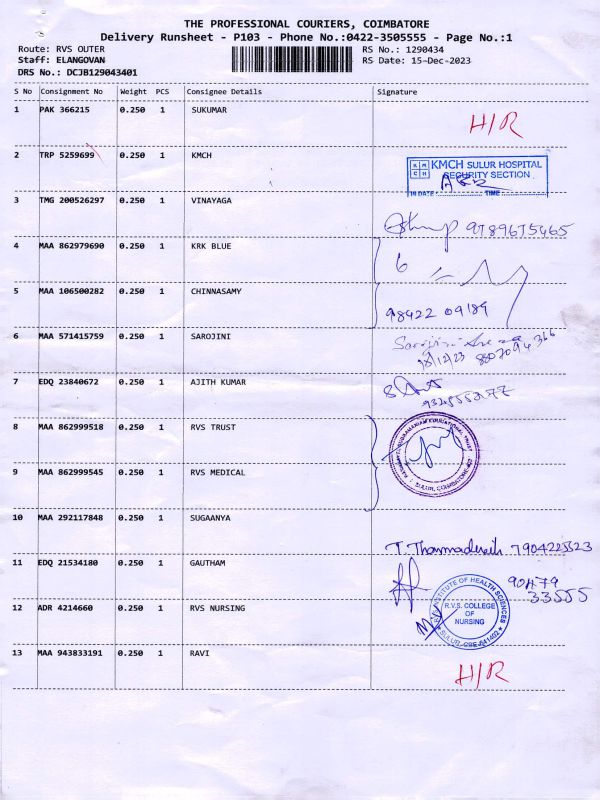 THE PROFESSIONAL COURIERS, COIMBATORE
Delivery Runsheet - P103 - Phone No.:0422-3505555 - Page No.:1
Route: RVS OUTER
Staff: ELANGOVAN
DRS No.: DCJB129043401
RS No.: 1290434
RS Date: 15-Dec-2023
S No Consignment No Weight PCS Consignee Details Signature
1 PAK 366215 0.250 1 SUKUMAR H/R
2 TRP 5259699 0.250 1 KMCH
KMCH SULUR HOSPITAL
SECURITY SECTION
IN DATE: TIME
3 TMG 200526297 0.250 1 VINAYAGA
9789675465
4 MAA 862979690 0.250 1 KRK BLUE
5 MAA 106500282 0.250 1 CHINNASAMY
98422 09189
6 MAA 571415759 0.250 1 SAROJINI
Sarojini
8807094366
7 EDQ 23840672 0.250 1 AJITH KUMAR
8 MAA 862999518 0.250 1 RVS TRUST
EDUCATIONAL TRUST
SULUR, COIMBATORE
9 MAA 862999545 0.250 1 RVS MEDICAL
10 MAA 292117848 0.250 1 SUGAANYA
7904225523
11 EDQ 21534180 0.250 1 GAUTHAM
90479
33555
12 ADR 4214660 0.250 1 RVS NURSING
INSTITUTE OF HEALTH SCIENCES
R.V.S. COLLEGE
OF
NURSING
SULUR, CBE-641402
13 MAA 943833191 0.250 1 RAVI H/R